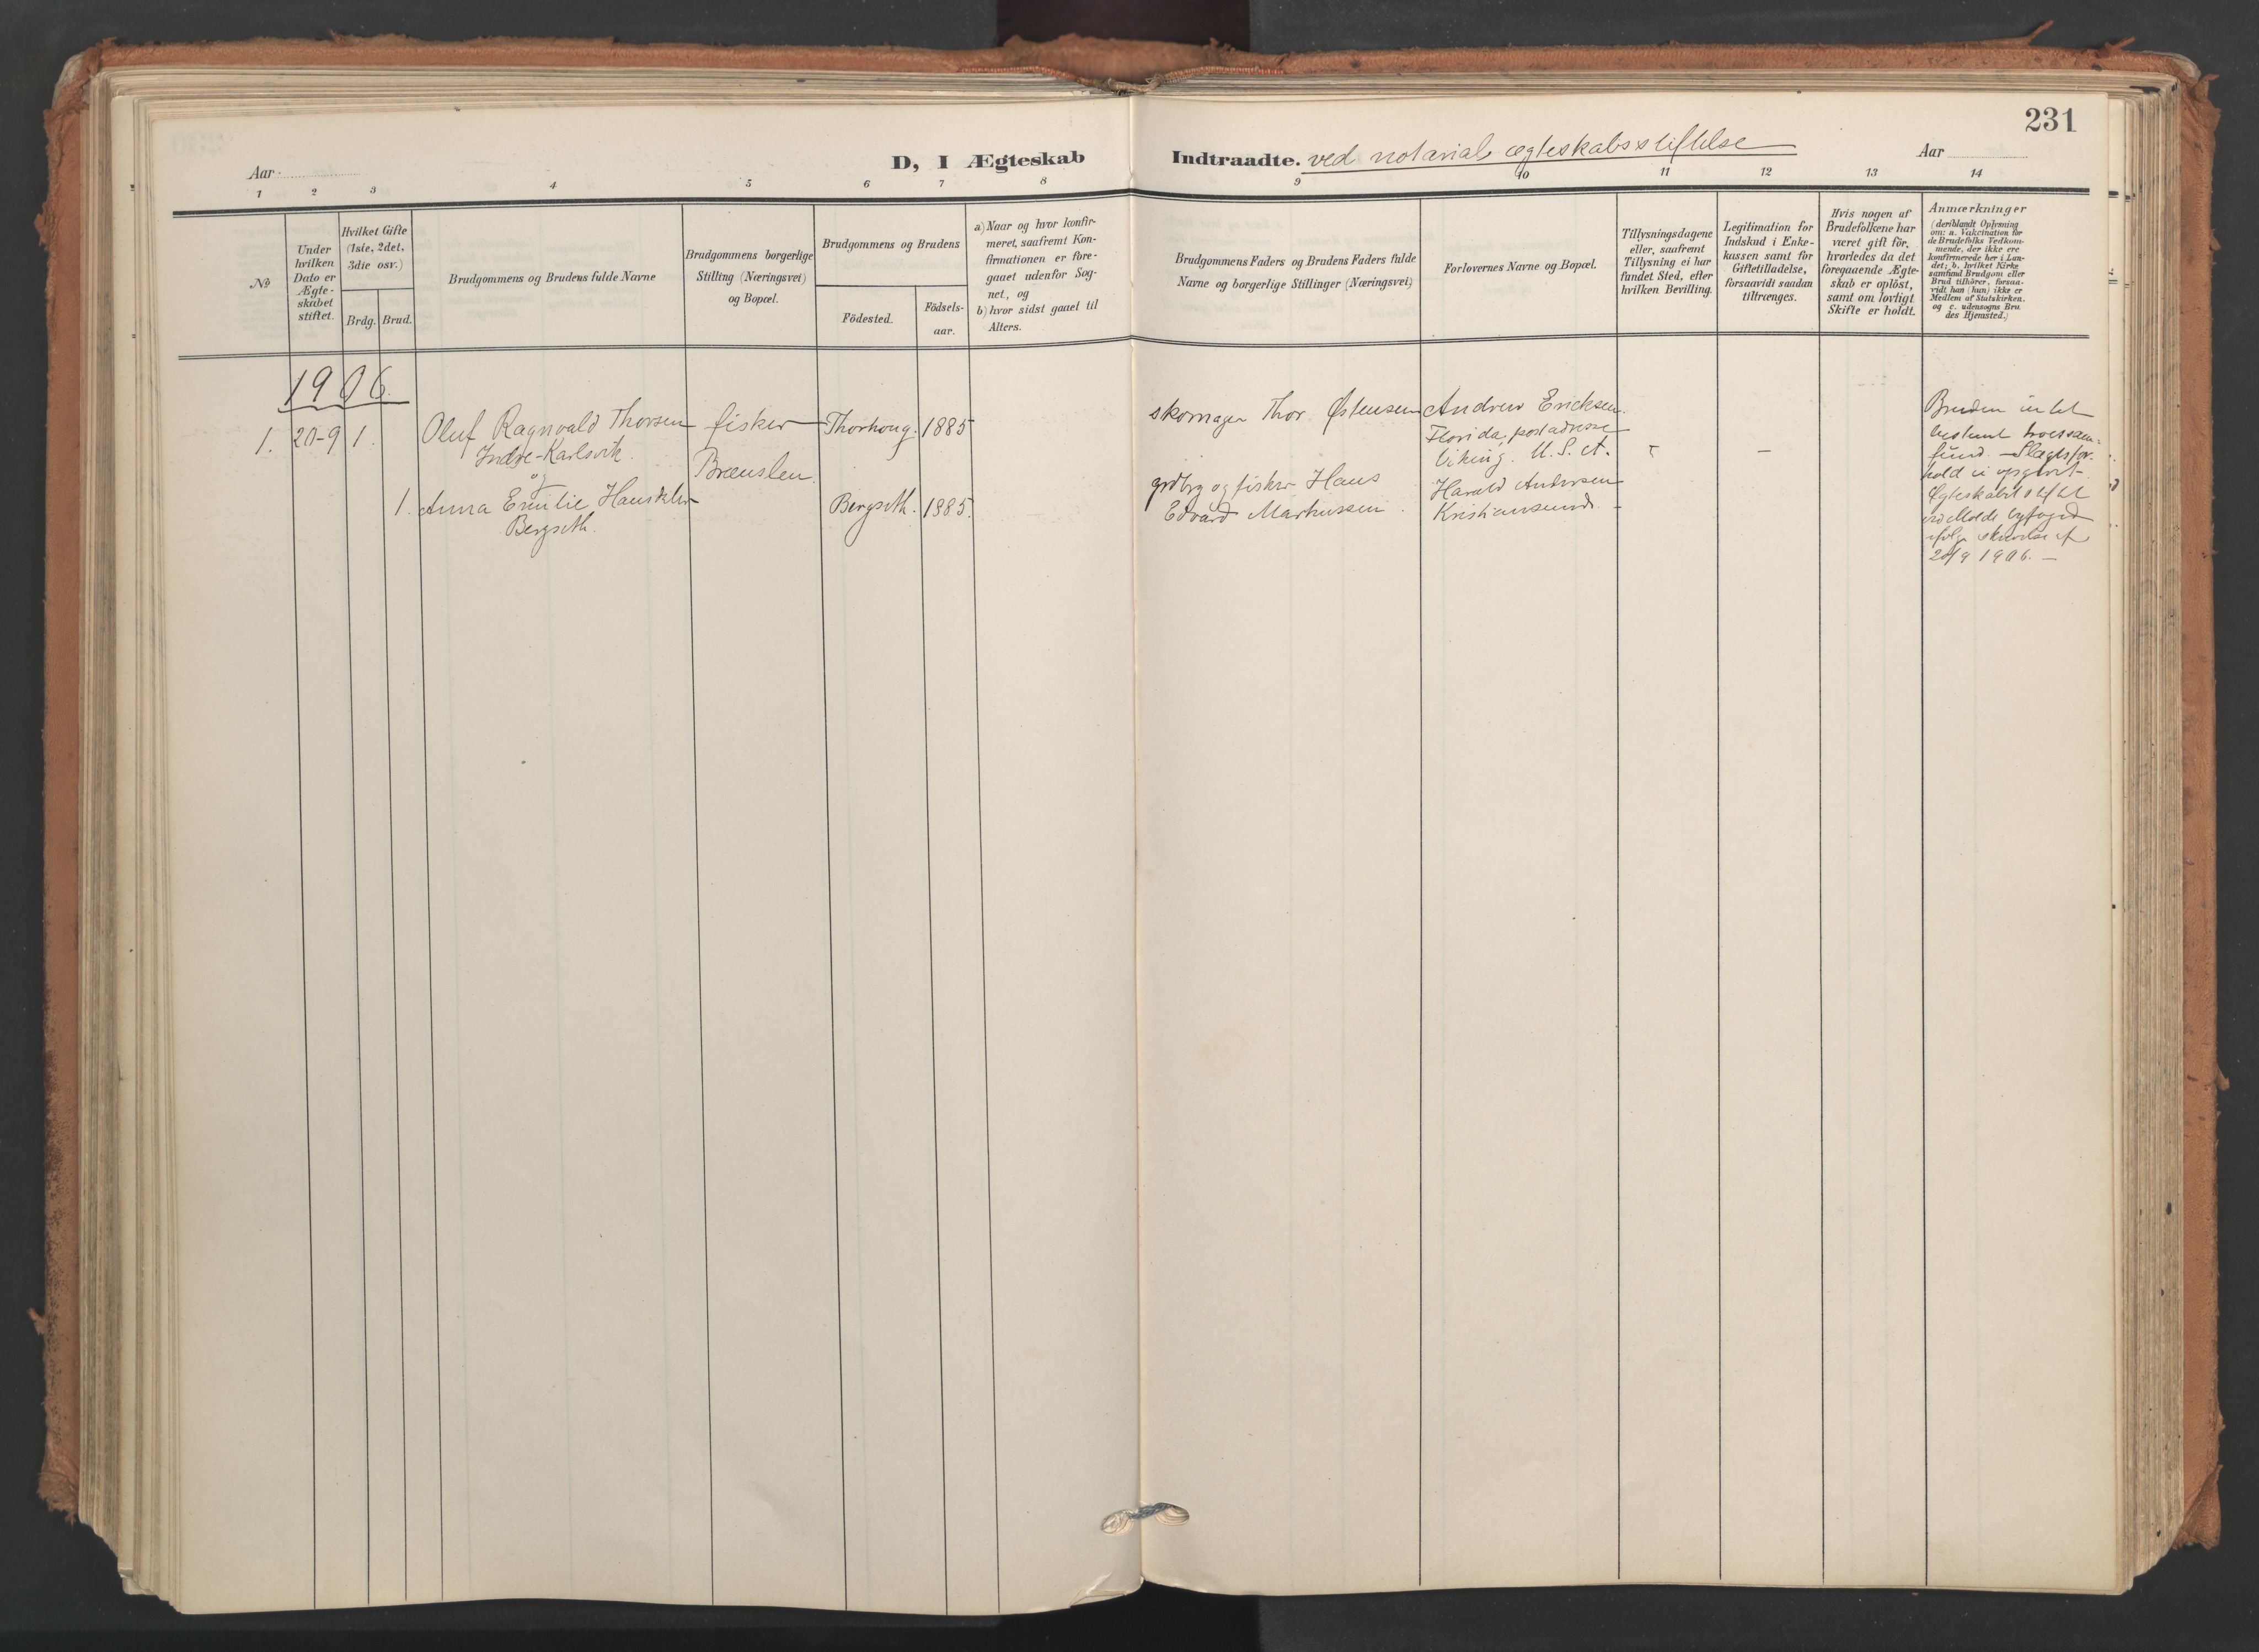 231
D, I Ægteskab Indtraadte. ved notarial ægteskabsstiftelse
Aar
Aar
1 2 3 4 5 6 7 8 9 10 11 12 13 14
No
Under
hvilken
Dato er
Ægte-
skabet
stiftet.
Hvilket Gifte
(1ste, 2det,
3die osv.)
Brdg. Brud.
Brudgommens og Brudens fulde Navne
Brudgommens borgerlige
Stilling (Næringsvei)
og Bopæl.
Brudgommens og Brudens
Födested.
Födsels-
aar.
a) Naar og hvor konfir-
meret, saafremt Kon-
firmationen er fore-
gaaet udenfor Sog-
net, og
b) hvor sidst gaaet til
Alters.
Brudgommens Faders og Brudens Faders fulde
Navne og borgerlige Stillinger (Næringsvei)
Forlovernes Navne og Bopæl.
Tillysningsdagene
eller, saafremt
Tillysning ei har
fundet Sted, efter
hvilken Bevilling.
Legitimation for
Indskud i Enke-
kassen samt for
Giftetilladelse,
forsaavidt saadan
tiltrænges.
Hvis nogen af
Brudefolkene har
været gift för,
hvorledes da det
foregaaende Ægte-
skab er oplöst,
samt om lovligt
Skifte er holdt.
Anmærkninger
(deriblandt Oplysning
om: a. Vakcination for
de Brudefolks Vedkom-
mende, der ikke ere
konfirmerede her i Lan-
det; b. hvilket Kirke
samfund Brudgom eller
Brud tilhörer, forsaa-
vidt han (hun) ikke er
Medlem af Statskirken.
og c. udensogns Bru
des Hjemsted.)
1906.
1. 20-9 1. Oluf Ragnvald Thorsen fisker Thorhoug. 1885
Indre-Karlsvik.
og
1. Anna Emilie Hansdtr Bergsvik. 1885.
Bergsvik.
skomager Thor Østensen
grdbrg og fisker Hans
Edvard Markussen.
Andrew Ericksen.
Florida, postadresse
Viking. U. S. A.
Harald Andersen
Kristiansund.
-
-
Bruden intet
bestemt troessam=
fund. - Slægtsfor-
hold ei opgivet.
Ægteskabet stiftet
ved Molde byfoged
ifølge skrivelse af
20/9 1906. -